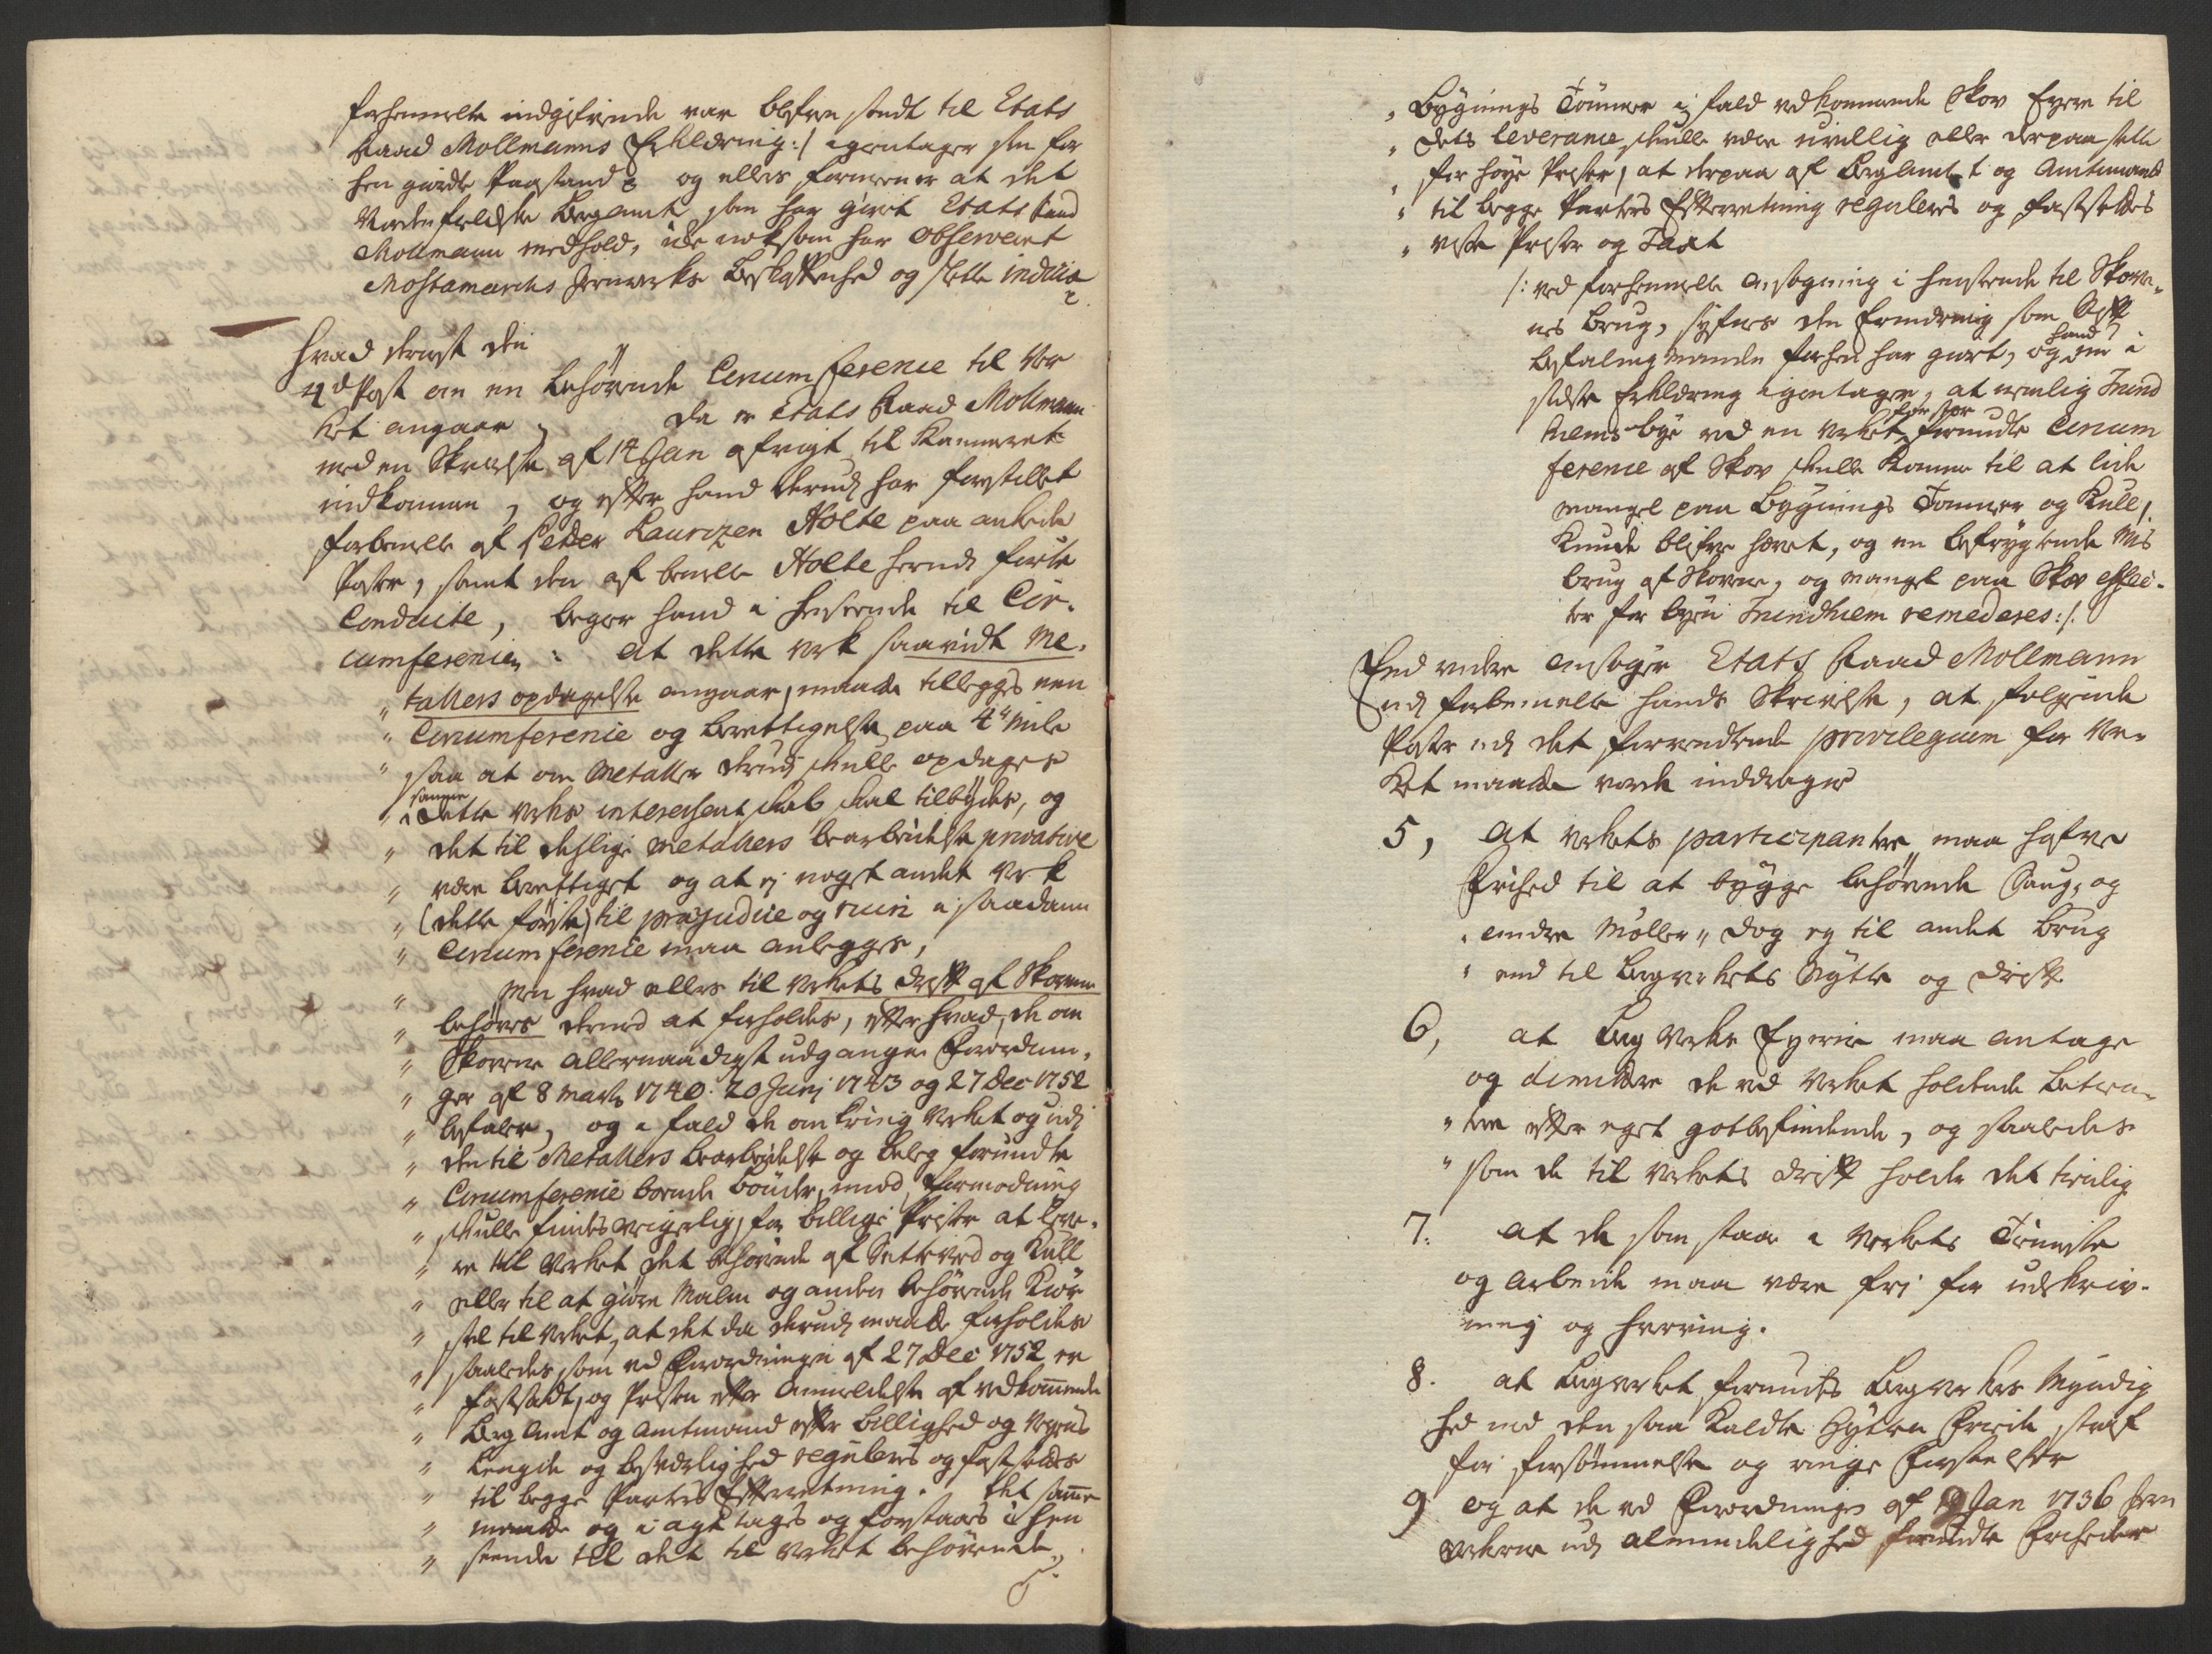 forhenmelte indgifvende var blefven sendt til Etats
Raad Mollmanns Erklæring :/ igientager sin for
hen giorde Paastand og ellers formener at det
Nordenfieldske Bergamt, som har givet Etats Raad
Mollmann medhold, icke noksom har observeret
Mostamarchs Jernverks Beskaffenhed og slette indicia
Hvad dernest den
4de Post om en behøvende Circumference til Ver
ket angaar, da er Etats Raad Mollmann
med en Skrivelse af 14 Jan afvigt til Kammeret
indkommen, og efter hand derudj har forestillet
forbemelte af Peder Lauritzen Holte paa ankede
Poster, samt den af bemelte Holte herudj førte
Conduite, begier hand i henseende til Cir-
cumferencen: at dette verk saavidt Me-
" tallers opdagelse angaar, maatte tillegges een
" Circumference og berettigelse paa 4 Mile
" saa at om Metaller derudj skulle opdages
" samme dette verks interessentskab skal tilbydes, og
" det til deslige metallers bearbeidelse privative
" være berettiget og at ej noget andet Verk
" (dette første) til præjudice og ruin i saadann
" Circumference maa anlegges,
" Men hvad ellers til verkets drift af Skovene
" behøves dermed at forholdes, efter hvad de om
" Skovene allernaadigst udgangne Forordnin-
" ger af 8 Marts 1740. 20 Junj 1743 og 27 Dec 1752
" befaler, og i fald de omkring verket og udj
" den til Metallers bearbeidelse og beleg forundte
" Circumference boende bønder, imod formodning
" skulle findes veigerlig, for billige Priser at leve-
" re til verket det behøvende af Setteved og Kull
" eller til at giøre Malm og anden behøvende Kiør
" sel til verket, at det da derudj maatte forholdes
" saaledes som ved Forordningen af 27 Dec 1752 er
" fastsadt, og Prisen efter Anmeldelse af vedkommende
" Berg Amt og Amtmand efter billighed og Vejens
" Lengde og besværlighed reguleres og fastsettes
" til begge Parters Efterretning. Det samme
" maatte og i agt tages og forstaaes i hen
" seende til det til verket behøvende
" Bygnings Tømmer i fald vedkommende Skov Eyere til
" dets leverance skulle være uvillig eller derpaa sette
" for høye Priser, at derpaa af Bergamtet og Amtmand
" til begge Parters Efterretning reguleres og fastsettes
" visse Priser og Taxt
/: ved forhenmelte ansøgning i henseende til Skove-
nes brug, hafves den Erindring som Stift
befalingsmanden forhen har giort, og hand den i
sidste Erklæring igientager, at nemlig Trund
hiems bye ved en verket for stor forundte Circum
ference af Skov skulle komme til at lide
mangel paa bygnings Tømmer og Kull,
kunde blifve hævet, og en befrygtende Mis
brug af Skovene, og mangel paa Skov effec-
ter for byen Trundhiem remederes :/
End videre ansøger Etats Raad Mollmann
udj forbemelte hands Skrivelse, at følgende
Poster udj det forventende privilegium for Ver-
ket maatte vorde inddragne
5, at verkets participantere maa hafve
Frihed til at bygge behøvende Saug- og
" andre Møller, dog ey til andet brug
" end til bergverkets Nytte og drift
6, at Berg verks Eyerne maa antage
og dimittere de ved verket holdende betien-
" tere efter eget gotbefindende, og saaledes
" som de til verkets drift holde det tienlig
7. at de som staae i verkets Tieneste
og Arbeide maa være frj for udskriv-
ning og hverving.
8. at Bergverket forundes bergverkers Myndig
hed med den saa kaldte Hytten Frieste straf
for forsømmelse og ringe forseelser
9 og at de ved Forordningen af 19 Jan 1736 Jern
verkerne udj almindelighed forundte Friheder